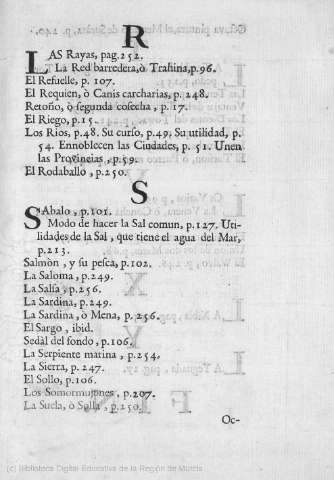 R
LAS Rayas, pag. 252.
La Red barredera, ò Trahina, p. 96.
El Refuelle, p. 107.
El Requien, ò Canis carcharias, p. 248.
Retoño, ò segunda cosecha, p. 17.
El Riego, p. 15.
Los Rios, p. 48. Su curso, p. 49. Su utilidad, p.
54. Ennoblecen las Ciudades, p. 51. Unen
las Provincias, p. 59.
El Rodaballo, p. 250.
S
SAbalo, p. 101.
Modo de hacer la Sal comun, p. 127. Uti-
lidades de la Sal, que tiene el agua del Mar,
p. 213.
Salmòn, y su pesca, p. 102.
La Saloma, p. 249.
La Salsa, p. 256.
La Sardina, p. 249.
La Sardina, ò Mena, p. 256.
El Sargo, ibid.
Sedàl del fondo, p. 106.
La Serpiente marina, p. 254.
La Sierra, p. 247.
El Sollo, p. 106.
Los Somormujones, p. 207.
La Suela, ò Solla, p. 250.
Oc-
(c) Biblioteca Digital Educativa de la Región de Murcia